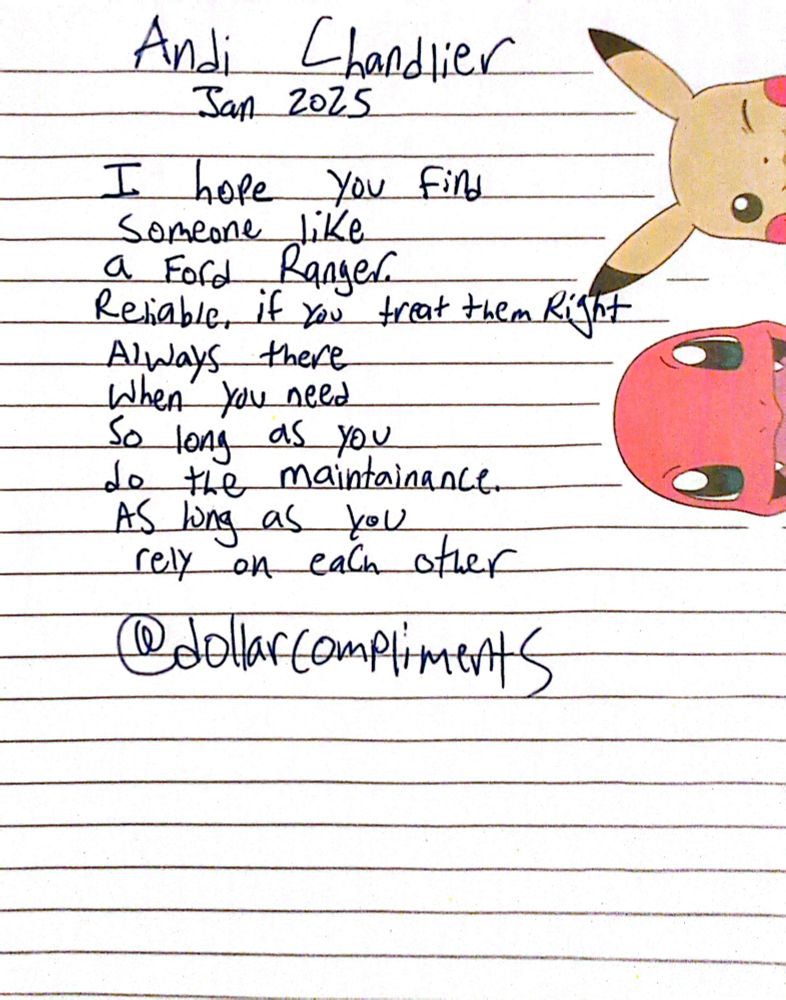 Andi Chandlier
Jan 2025
I hope you find
someone like
a Ford Ranger.
Reliable, if you treat them Right
Always there
When you need
So long as you
do the maintainance.
As long as you
rely on each other
@dollarcompliments